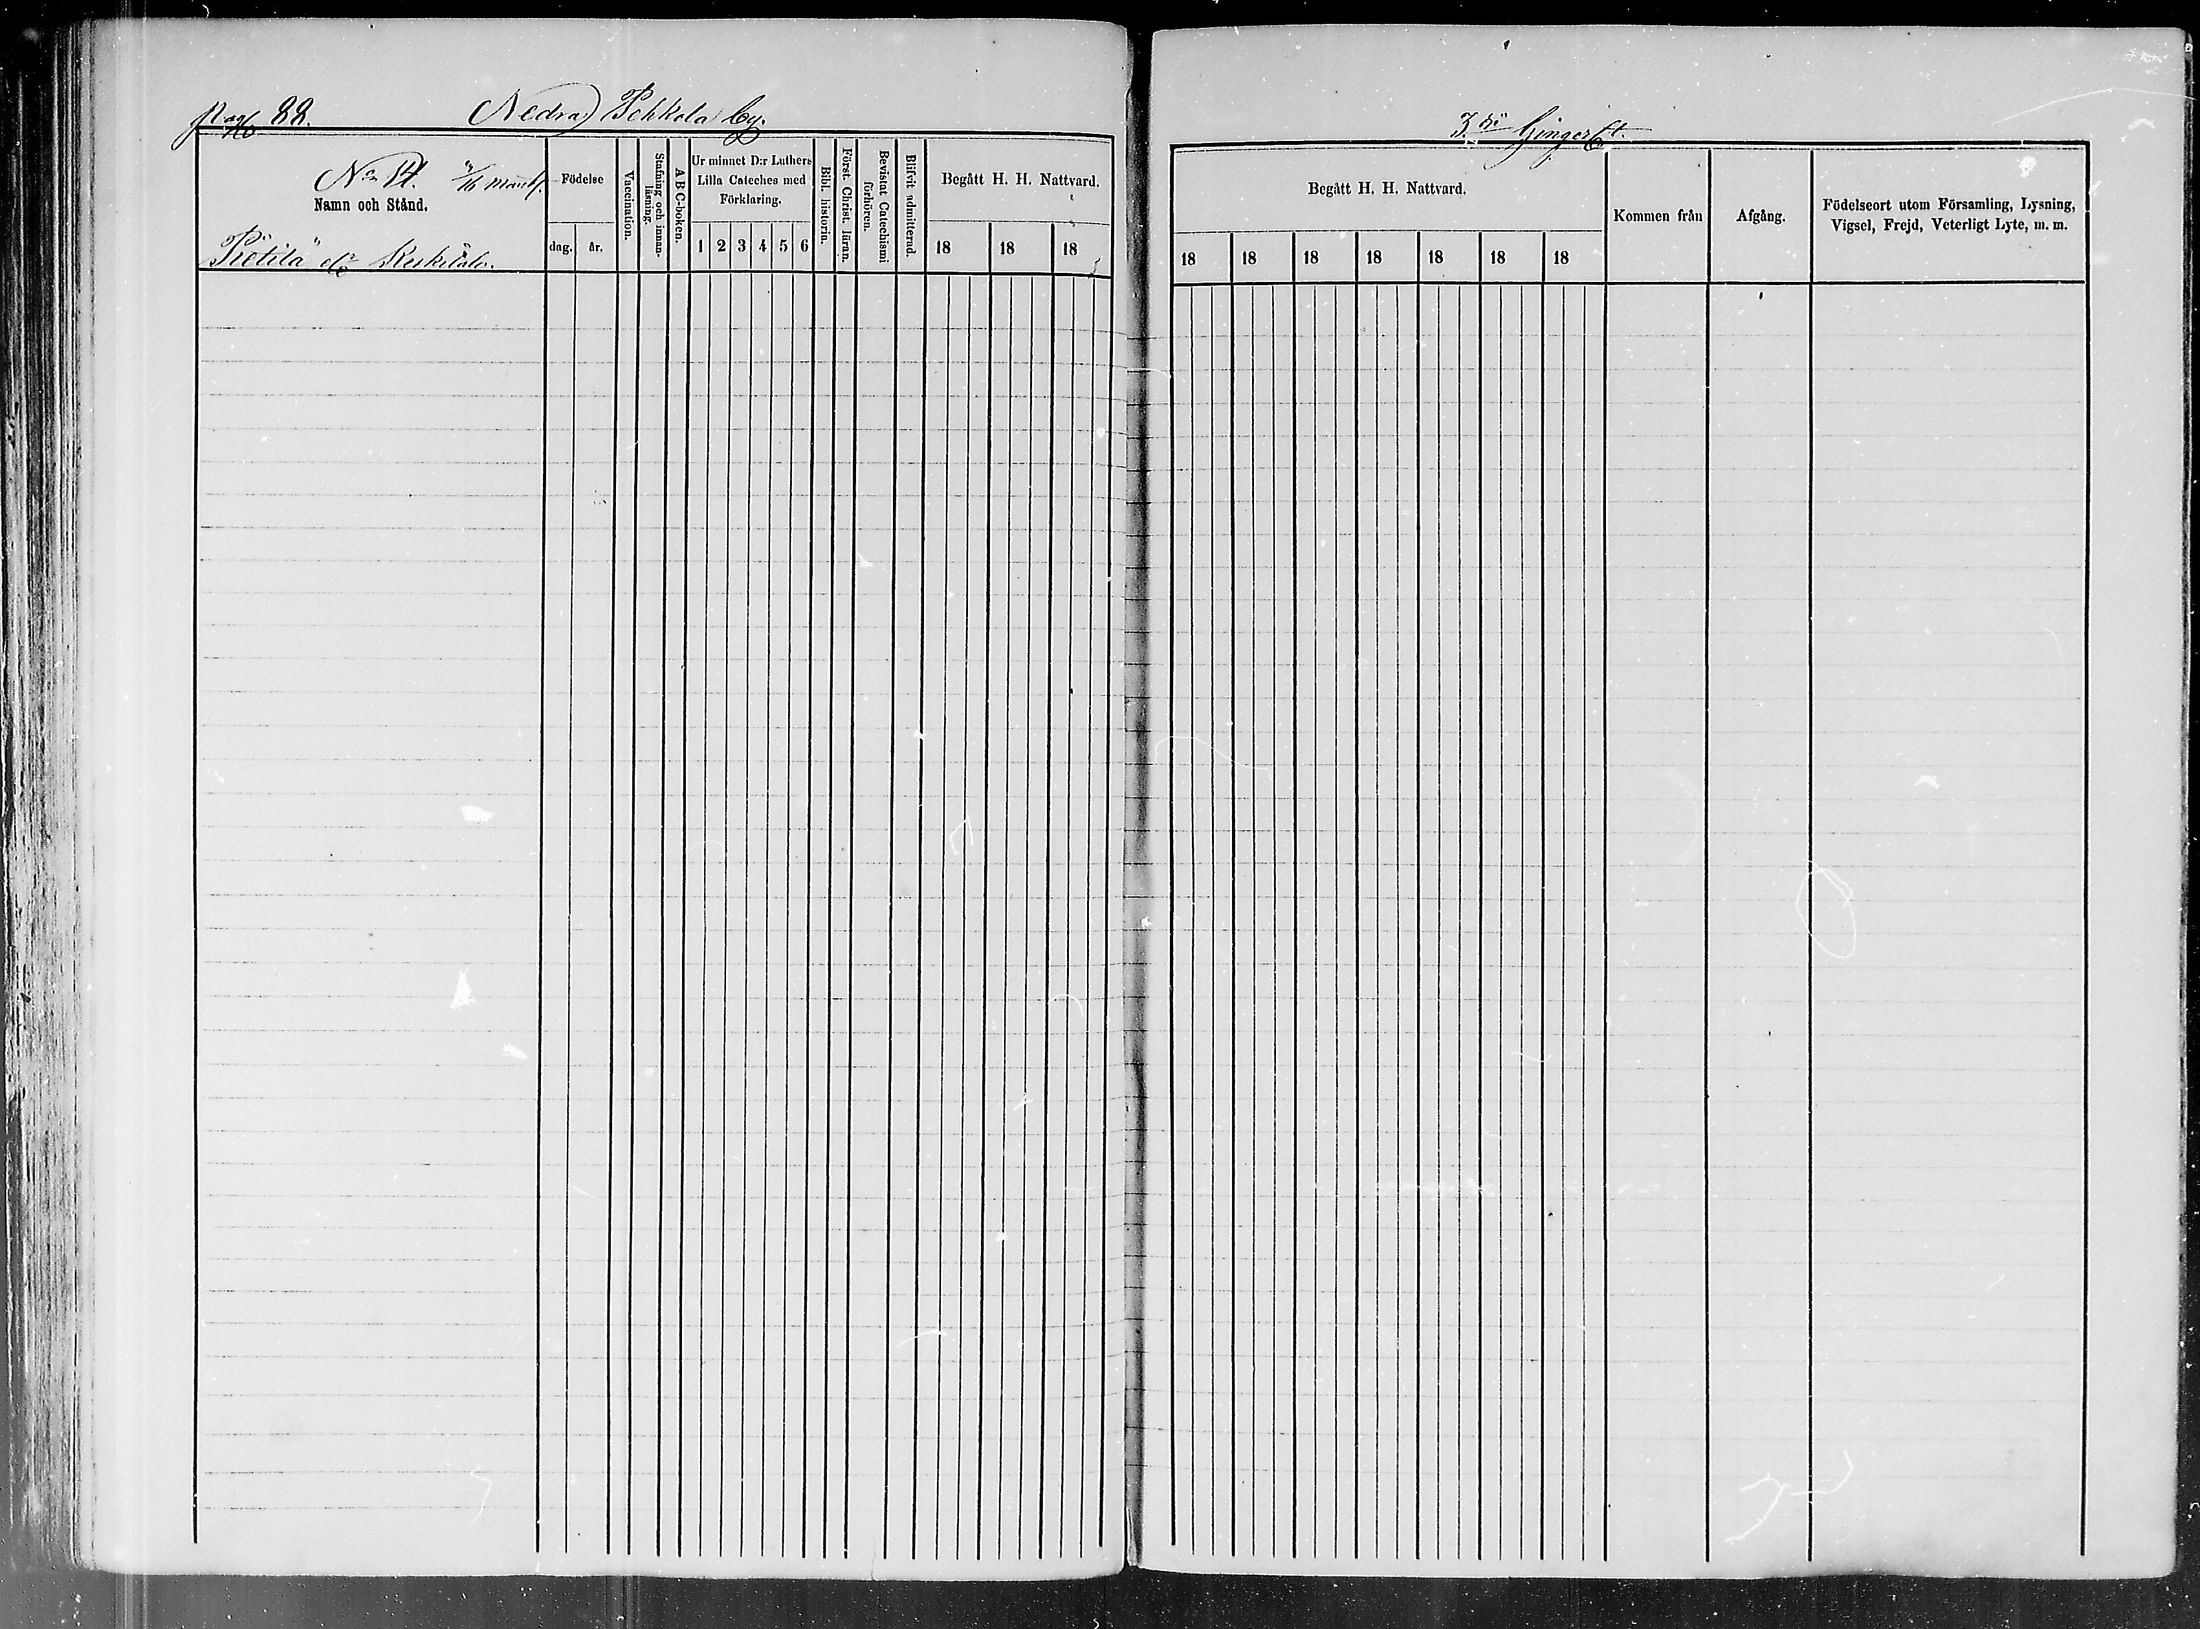 Pag 88. Nedra Pekkola by.
No 14.
Namn och Stånd.
Pietilä el. Keskitalo.
Födelse
dag. år.
Vaccination.
Stafning och innanläsning.
A B C-boken.
Ur minnet D:r Luthers
Lilla Cateches med
Förklaring.
1 2 3 4 5 6
Bibl. historia.
Först. Christ. läran.
Bevistat Catechismi förhören.
Blifvit admitterad.
Begått H. H. Nattvard.
18 18 18
Begått H. H. Nattvard.
18 18 18 18 18 18 18
Kommen från
Afgång.
Födelseort utom Församling, Lysning,
Vigsel, Frejd, Veterligt Lyte, m. m.